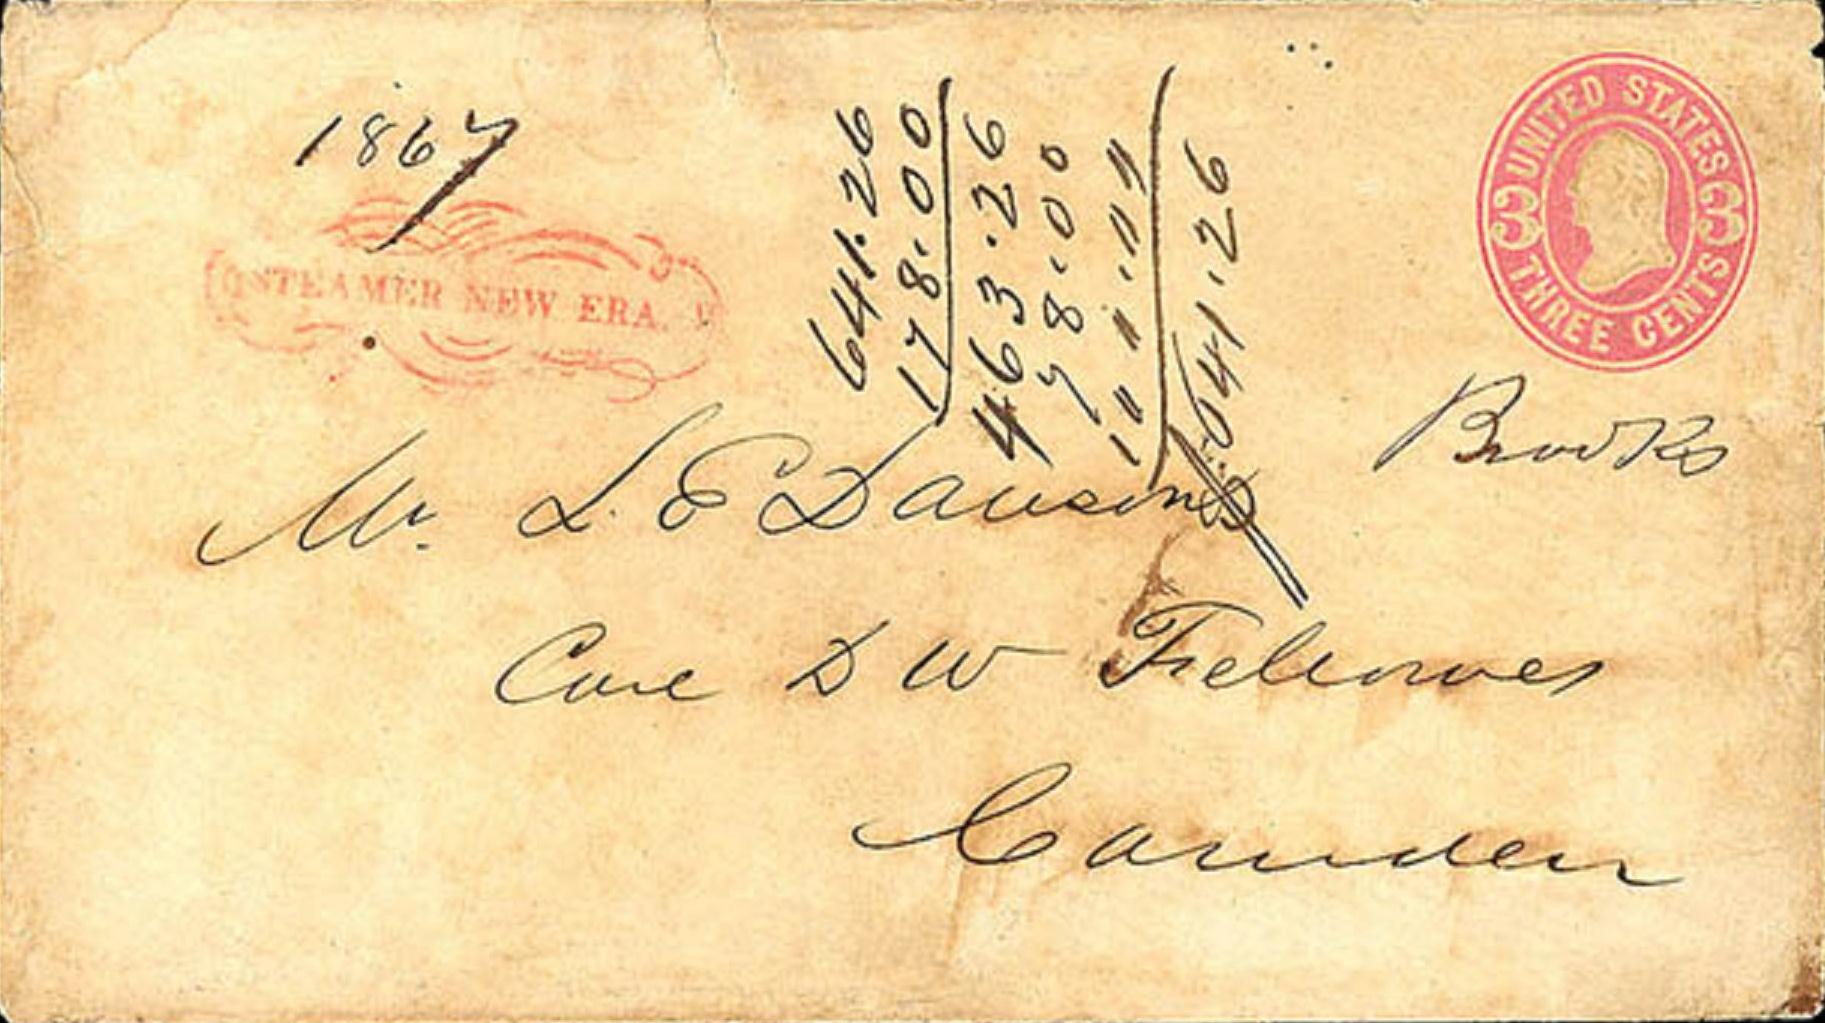 1867
STEAMER NEW ERA.
641.26
178.00
463.26
78.00
1 11 11.11
641.26
UNITED STATES
3 3
THREE CENTS
Brooks
Mr. L. E Dawson
Care D W Fellowes
Camden